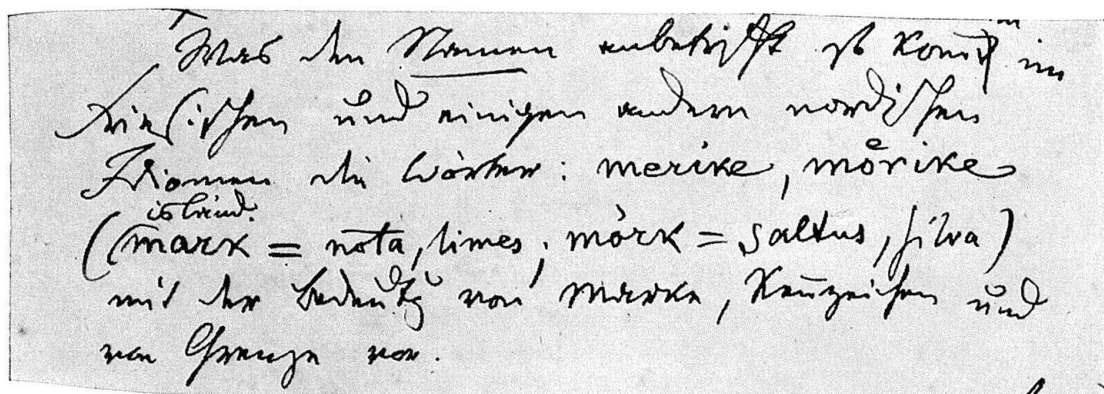 Was den Namen anbetrifft so kommen im
Friesischen und einigen andern nordischen
Idiomen die Wörter: merike, mörike
island.
(mark = nota, limes; mörk = saltus, silva)
mit der Bedeutg von Marke, Kennzeichen und
von Grenze vor.